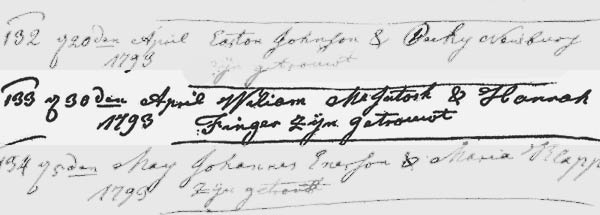 132 y 20den April Easton Johnson & Becky Newburg
1793 zijn getrouwt
133 y 30den April Wiliam McGutosh & Hannah
1793 Finger zijn getrouwt
134 y 5den May Johannes Enerson & Maria Klapp
1793 zijn getrouwt